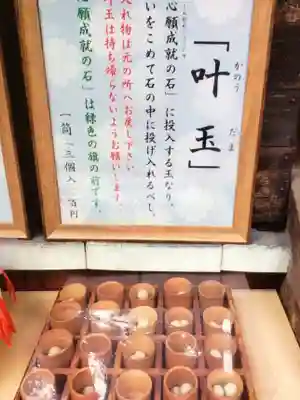 「叶玉」
かのう だま
心願成就の石」に投入する玉なり。
いをこめて石の中に投げ入れるべし。
入れ物は元の所へお戻し下さい
玉は持ち帰らないようお願いします。
心願成就の石」は緑色の旗の前です。
一筒(三個入)百円